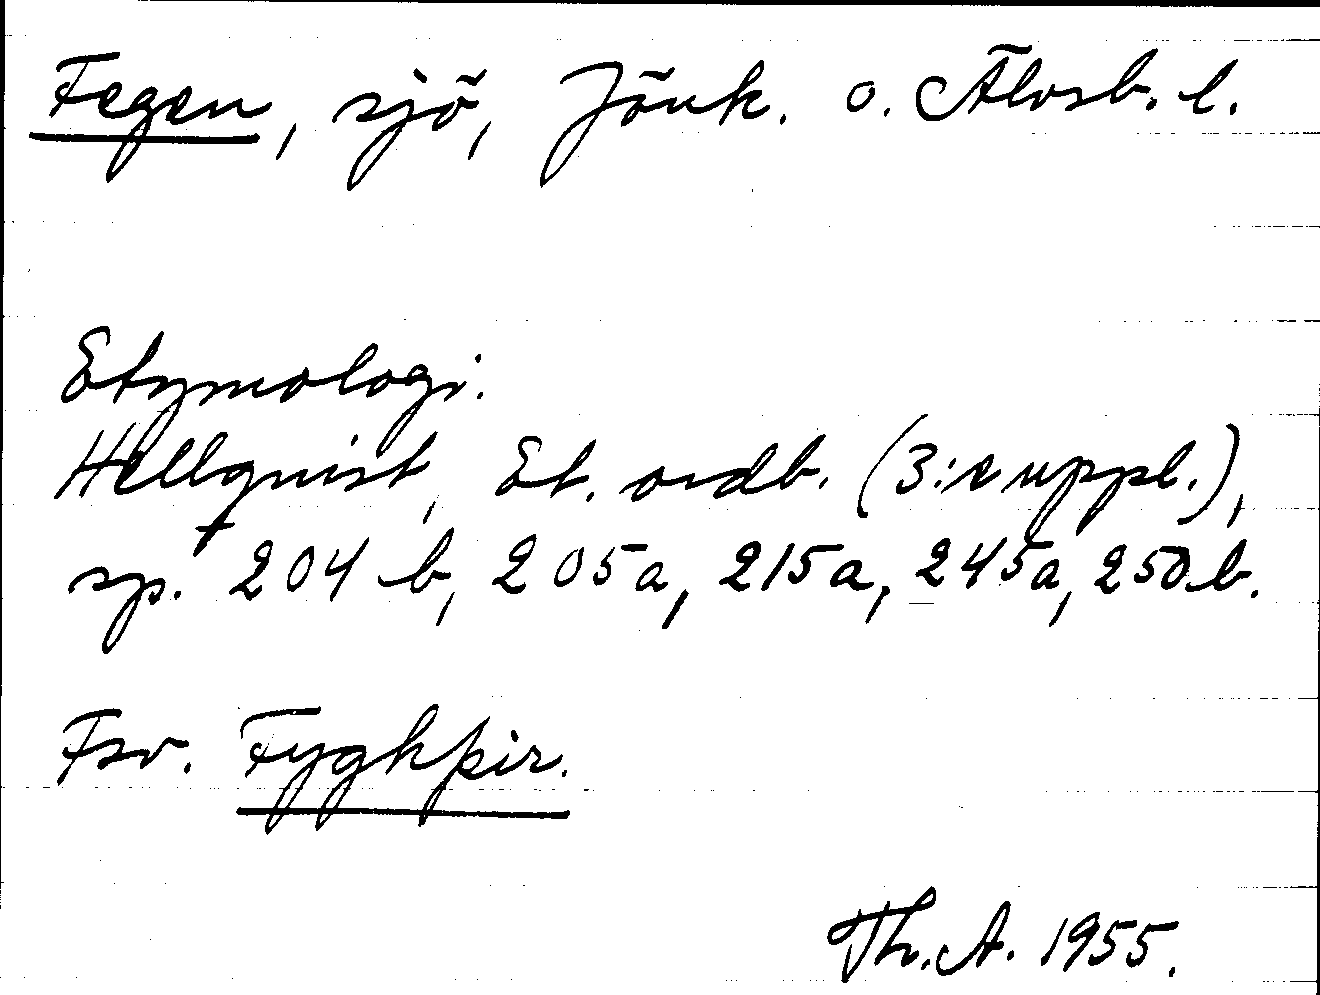 Fegen, sjö, Jönk. o. Älvsb. l.
Etymologi.
Hellquist, Et. ordb. (3:e uppl.),
sp. 204 b, 205a, 215a, 245a, 250b.
Fsv. Fyghþir.
Th. A. 1955.